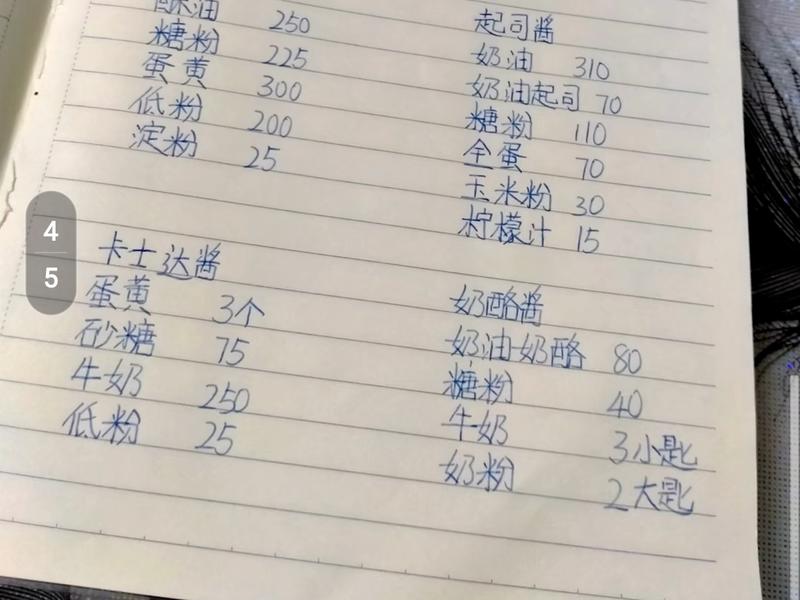 酥油 250
糖粉 225
蛋黄 300
低粉 200
淀粉 25
起司酱
奶油 310
奶油起司 70
糖粉 110
全蛋 70
玉米粉 30
柠檬汁 15
4
5
卡士达酱
蛋黄 3个
砂糖 75
牛奶 250
低粉 25
奶酪酱
奶油奶酪 80
糖粉 40
牛奶 3小匙
奶粉 2大匙